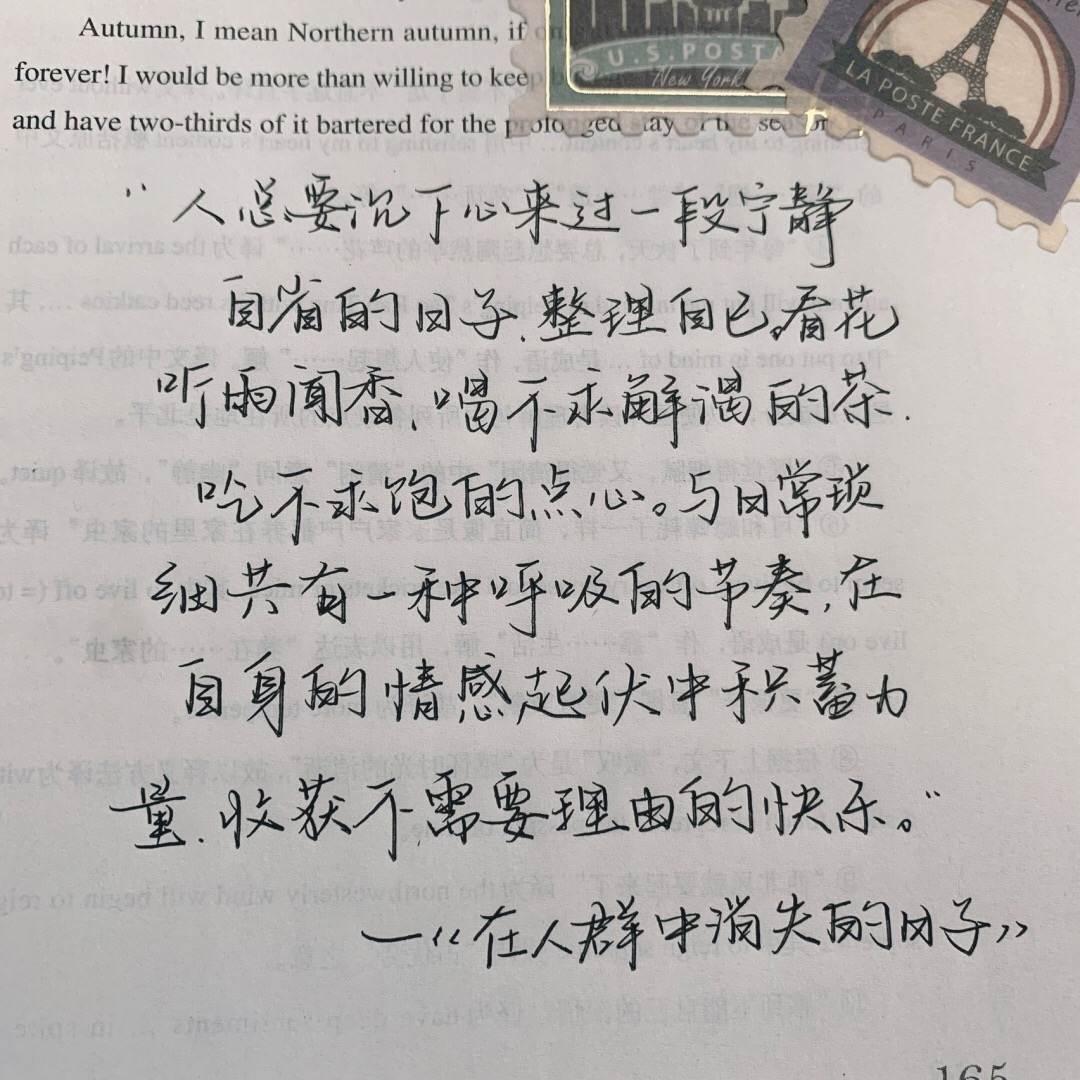 Autumn, I mean Northern autumn, if
forever! I would be more than willing to keep
and have two-thirds of it bartered for the prolonged stay of the season
U.S. POSTA
New York
LA POSTE FRANCE
PARIS
“人总要沉下心来过一段宁静
自省的日子,整理自己,看花
听雨闻香,喝不求解渴的茶,
吃不求饱的点心。与日常琐
细共有一种呼吸的节奏,在
自身的情感起伏中积蓄力
量,收获不需要理由的快乐。”
—《在人群中消失的日子》
165